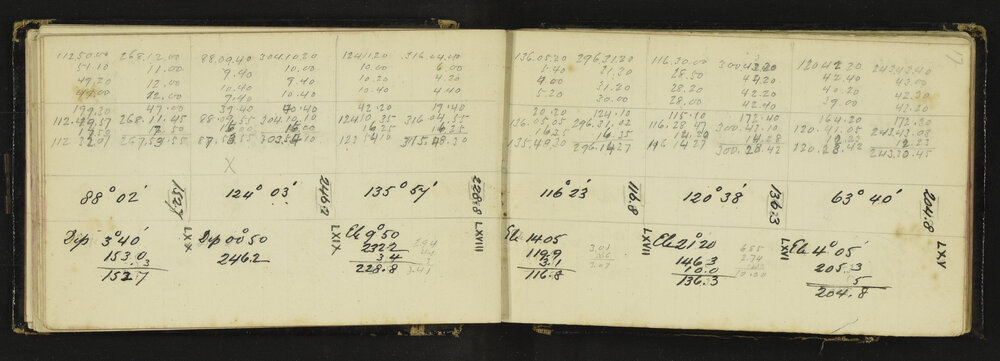 11250.00 268.12.00 88.09.40 304.10.20 124.11.20 316.04.00
51.10 11.00 9.40 10.00 10.00 6.00
49.20 12.00 10.00 9.40 10.20 4.20
49.00 12.00 9.40 10.40 10.40 4.40
199.30 47.00 39.40 40.40 42.20 19.40
112.49.57 268.11.45 88.09.55 304.10.10 124.10.35 316.04.55
17.50 17.50 16.00 16.00 16.25 16.25
112.32.07 267.53.55 87.53.55 303.54.10 123.54.10 315.48.30
X
88° 02' 152.7 124° 03' 246.2 135° 54' 228.8
LXX LXIX LXVIII
Dip 3°40' Dip 00°50 El 9°50
153.0 246.2 232.2
.3 3.4
152.7 228.8
3.41
136.05.20 296.31.20 116.30.00 300.43.20 120.42.20 243.42.40
5.40 31.30 28.50 44.20 42.40 43.00
4.00 31.00 28.20 42.20 40.20 42.30
5.20 30.00 28.00 42.40 39.00 42.20
20.20 124.10 115.10 172.40 164.20 172.20
136.05.05 296.31.02 116.28.47 300.43.10 120.41.05 243.43.08
16.35 16.35 14.20 14.28 12.23 12.23
135.49.30 296.14.27 116.14.27 300.28.42 120.28.42 243.30.45
116° 23' 116.8 120° 38' 136.3 63° 40' 204.8
LXVII LXVI LXV
El 14°05 El 21°20 El 4°05'
119.9 146.3 205.3
3.1 10.0 .5
116.8 136.3 204.8
3.01 6.55
2.74
3.07 10.00